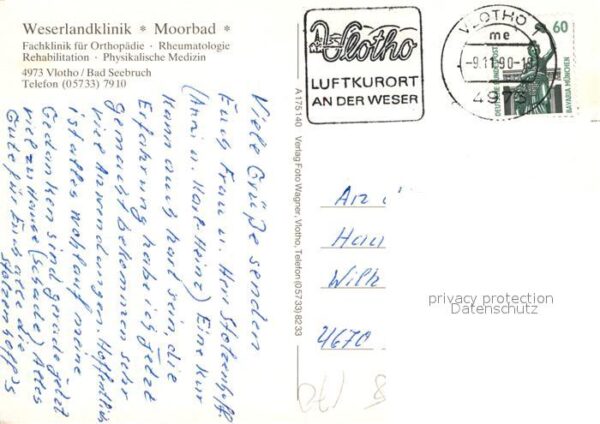 Weserlandklinik * Moorbad *
Fachklinik für Orthopädie · Rheumatologie
Rehabilitation · Physikalische Medizin
4973 Vlotho / Bad Seebruch
Telefon (05733) 7910
Viele Grüße senden
Euch Frau u. Herr Stolzenhoff.
(Anni u. Karl-Heinz) Eine Kur
kann auch hart sein, die
Erfahrung habe ich jetzt
gemacht bekommen sehr
viel Anwendungen. Hoffentlich
ist alles wohlauf meine
Gedanken sind gerade jetzt
viel zu Hause (schade) Alles
Gute für Euch alle die
Stolzenhoff's
A 175 140 Verlag Foto Wagner, Vlotho, Telefon (05733) 8233
Vlotho
LUFTKURORT
AN DER WESER
VLOTHO
me
-9.11.90-18
4973
60
DEUTSCHE BUNDESPOST
BAVARIA MÜNCHEN
An
Hau
Wilh
4670
privacy protection
Datenschutz